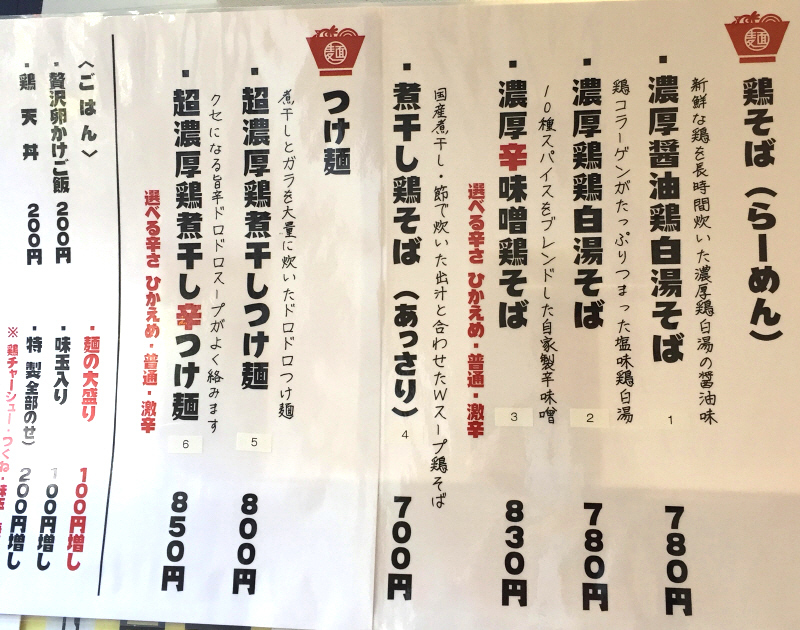 麺
鶏そば（らーめん）
新鮮な鶏を長時間炊いた濃厚鶏白湯の醤油味
・濃厚醤油鶏白湯そば
1
780円
鶏コラーゲンがたっぷりつまった塩味鶏白湯
・濃厚鶏鶏白湯そば
2
780円
10種スパイスをブレンドした自家製辛味噌
・濃厚辛味噌鶏そば
3
830円
選べる辛さ ひかえめ・普通・激辛
国産煮干し・節で炊いた出汁と合わせたWスープ鶏そば
・煮干し鶏そば（あっさり）
4
700円
麺
つけ麺
煮干しとガラを大量に炊いたドロドロつけ麺
・超濃厚鶏煮干しつけ麺
5
800円
クセになる旨辛ドロドロスープがよく絡みます
・超濃厚鶏煮干し辛つけ麺
6
850円
選べる辛さ ひかえめ・普通・激辛
〈ごはん〉
・贅沢卵かけご飯 200円
・鶏天丼 200円
・麺の大盛り 100円増し
・味玉入り 100円増し
・特製全部のせ） 200円増し
※鶏チャーシュー・つくね・味玉